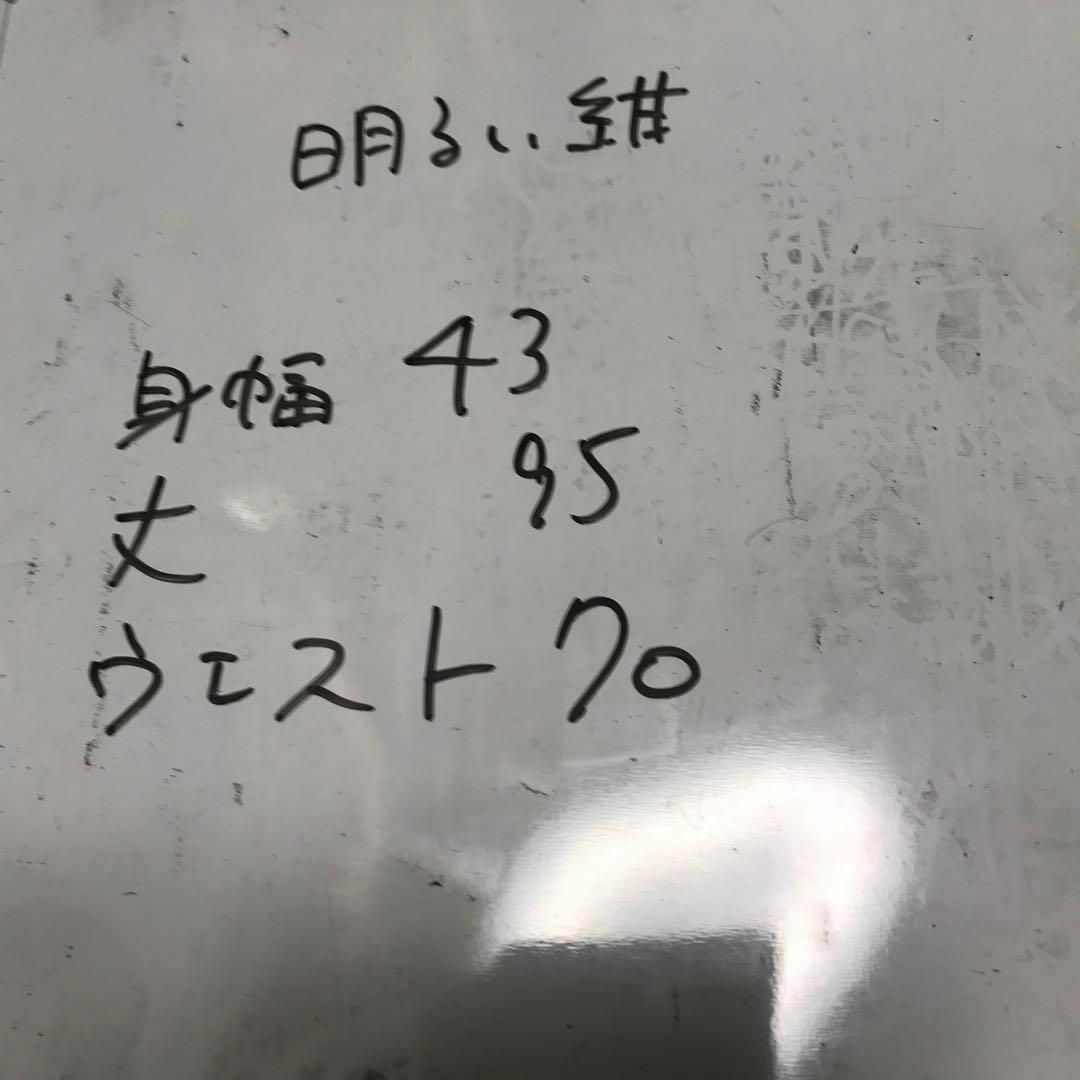 明るい紺
身幅 43
丈 95
ウエスト 70